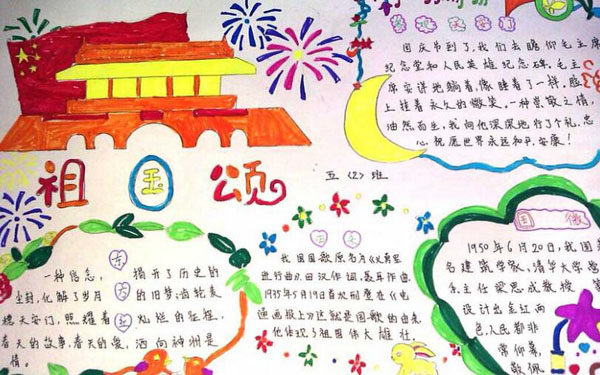 国庆节到了,我们去瞻仰毛主席
纪念堂和人民英雄纪念碑,毛主
席安详地躺着,像睡着了一样,脸
上挂着永久的微笑,一种崇敬之情,
油然而生,我向他深深地行了个礼,忠
心祝愿世界永远和平、安康!
祖国颂
五〈2〉班
一种信念,
揭开了历史的
尘封,化解了岁月
的旧梦;齿轮麦
穗天安门,照耀着
灿烂的征程。
春天的故事,春天的爱,洒向神州是
情。
国歌
我国国歌原名为《义勇军
进行曲》,田汉作词,聂耳作曲
1935年5月19首次刑登在《电
通画报上》这就是国歌的由来
他体现了祖国伟大雄壮。
国徽
1950年6月20日,我国
名建筑学家,清华大学
系主任梁思成教授
设计出金红两
色,人民都非
常仰慕,
敬佩